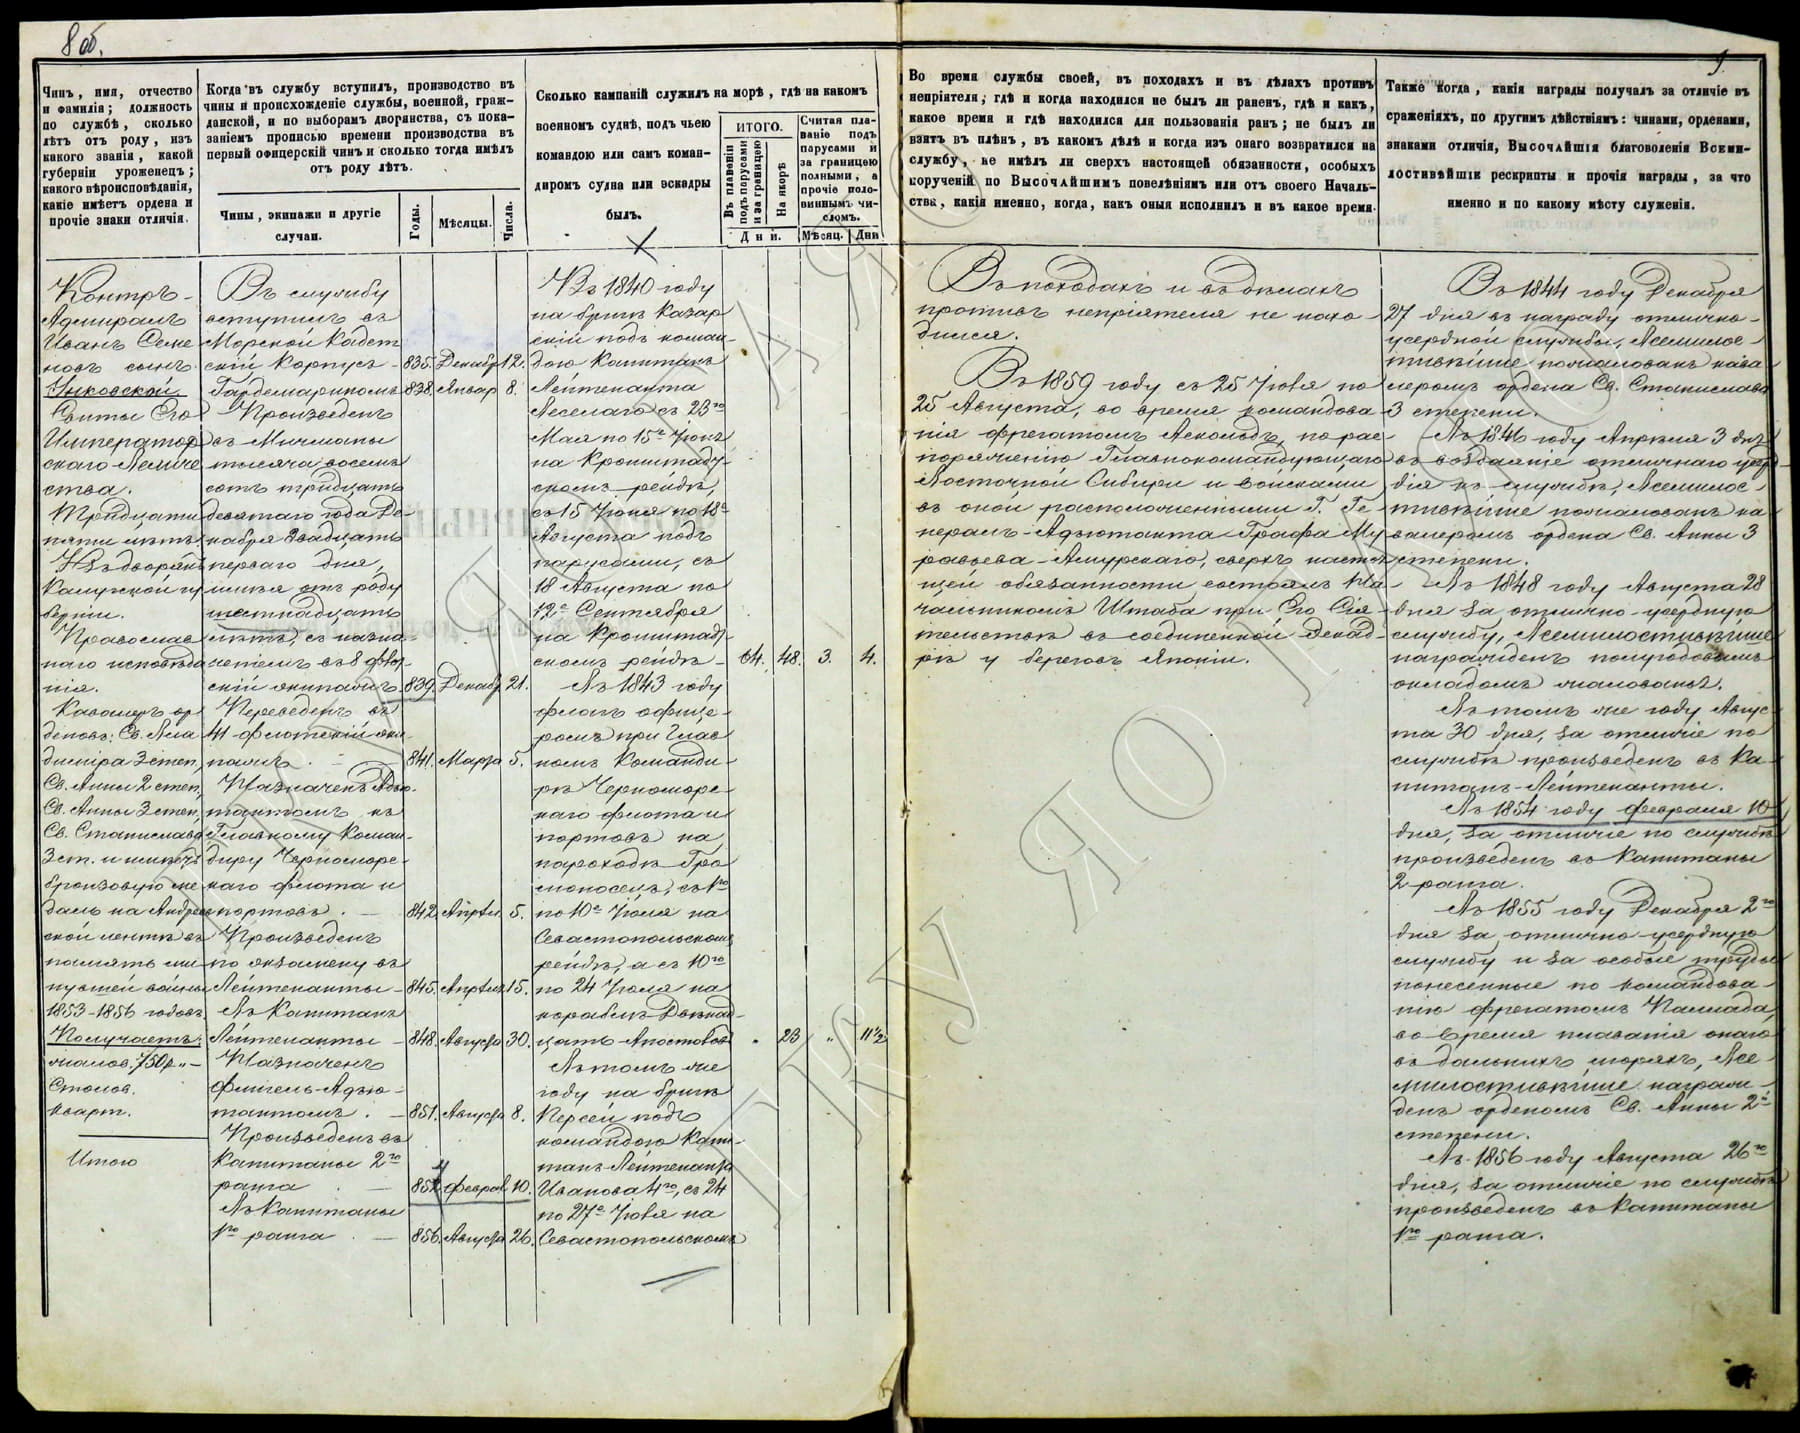 8 об.
9.
Чинъ, имя, отчество
и фамилія; должность
по службѣ, сколько
лѣтъ отъ роду, изъ
какого званія, какой
губерніи уроженецъ;
какого вѣроисповѣданія,
какіе имѣетъ ордена и
прочіе знаки отличія.
Контръ-
Адмиралъ
Иванъ Семе
новъ сынъ
Унковской
Свиты Его
Император
скаго Величе
ства.
Тридцати
пяти лѣтъ
Изъ дворянъ
Калужской гу
берніи.
Православ
наго исповѣда
нія.
Кавалеръ ор
деновъ: Св. Вла
диміра 3 степ,
Св. Анны 2 степ,
Св. Анны 3 степ,
Св. Станислава
3 ст. и имѣетъ
бронзовую ме
даль на Андреев
ской лентѣ въ
память ми
нувшей войны
1853-1856 годовъ.
Получаетъ:
жалов. 750 р. „ –
Столов.
Кварт.
Итого
Когда въ службу вступилъ, производство въ
чины и происхожденіе службы, военной, граж-
данской, и по выборамъ дворянства, съ пока-
заніемъ прописью времени производства въ
первый офицерскій чинъ и сколько тогда имѣлъ
отъ роду лѣтъ.
Чины, экипажи и другіе
случаи.
Годы.
Мѣсяцы.
Числа.
Въ службу
вступилъ въ
Морской Кадет
скій Корпусъ - 835. Декабр 12.
Гардемариномъ 838. Январ 8.
Произведенъ
въ Мичманы
тысяча восемь
сотъ тридцать
девятаго года Де-
кабря двадцать
перваго дня,
имѣя отъ роду
шестнадцать
лѣтъ, съ назна-
ченіемъ въ 8 флот-
скій экипажъ 839. Декабр 21.
Переведенъ въ
41 флотскій эки-
пажъ - 841. Марта 5.
Назначенъ Адъю-
тантомъ къ
Главному Коман-
диру Черноморс-
каго флота и
портовъ. - 842. Апрѣл. 5.
Произведенъ
по экзамену въ
Лейтенанты - 845. Апрѣл. 15.
Въ Капитанъ
Лейтенанты - 848. Августа 30.
Назначенъ
Флигель-Адъю-
тантомъ. - 851. Августа 8.
Произведенъ въ
Капитаны 2го
ранга. - 854 Феврал 10.
Въ Капитаны
1го ранга. - 856. Августа 26.
Сколько кампаній служилъ на морѣ, гдѣ на какомъ
военномъ суднѣ, подъ чьею
командою или самъ коман-
диромъ судна или эскадры
былъ.
ИТОГО.
Въ плаваніи
подъ парусами
и за границею
На якорѣ
Дни.
Считая пла-
ваніе подъ
парусами и
за границею
полными, а
прочіе поло-
виннымъ чи-
сломъ.
Мѣсяц. Дни
Въ 1840 году
на бригѣ Казар
скій подъ коман-
дою Капитанъ
Лейтенанта
Веселаго съ 23го
Мая по 15е Іюня
на Кронштадт-
скомъ рейдѣ,
съ 15 Іюня по 18е
Августа подъ
парусами, съ
18 Августа по
12е Сентября
на Кронштадт-
скомъ рейдѣ - 64. 48. 3. 4.
Въ 1843 году
флагъ офице-
ромъ при Глав
номъ Команди-
рѣ Черноморс-
каго флота и
портовъ на
пароходѣ Гро
моносецъ, съ 1го
по 10е Іюля на
Севастопольскомъ
рейдѣ, а съ 10го
по 24 Іюля на
кораблѣ Двѣнад-
цать Апостоловъ „ 23 „ 11½
Въ томъ же
году на бригѣ
Персей подъ
командою Капи-
танъ-Лейтенанта
Иванова 4го, съ 24
по 27е Іюля на
Севастопольскомъ
Во время службы своей, въ походахъ и въ дѣлахъ противъ
непріятеля; гдѣ и когда находился не былъ ли раненъ, гдѣ и какъ,
какое время и гдѣ находился для пользованія ранъ; не былъ ли
взятъ въ плѣнъ, въ какомъ дѣлѣ и когда изъ онаго возвратился на
службу, не имѣлъ ли сверхъ настоящей обязанности, особыхъ
порученій по Высочайшимъ повелѣніямъ или отъ своего Началь-
ства, какія именно, когда, какъ оныя исполнилъ и въ какое время.
Въ походахъ и въ дѣлахъ
противъ непріятеля не нахо-
дился.
Въ 1859 году съ 25 Іюля по
25 Августа, во время командова
нія фрегатомъ Аскольдъ, по рас-
поряженію Главнокомандующаго
Восточной Сибири и войсками
въ оной расположенными Г. Ге-
нералъ-Адъютанта Графа Му
равьева-Амурскаго, сверхъ настоя
щей обязанности состоялъ На-
чальникомъ Штаба при Его Сія-
тельствѣ въ соединенной Эскад-
рѣ у береговъ Японіи.
Также когда, какія награды получалъ за отличіе въ
сраженіяхъ, по другимъ дѣйствіямъ: чинами, орденами,
знаками отличія, Высочайшія благоволенія Всеми-
лостивѣйшіе рескрипты и прочія награды, за что
именно и по какому мѣсту служенія.
Въ 1844 году Декабря
27 дня въ награду отлично-
усердной службы, Всемилос-
тивѣйше пожалованъ кава
леромъ ордена Св. Станислава
3 степени.
Въ 1846 году Апрѣля 3 дня
въ воздаяніе отличнаго усер-
дія къ службѣ, Всемилос-
тивѣйше пожалованъ ка
валеромъ ордена Св. Анны 3
степени.
Въ 1848 году Августа 28
дня за отлично-усердную
службу, Всемилостивѣйше
награжденъ полугодовымъ
окладомъ жалованья.
Въ томъ же году Авгус-
та 30 дня, за отличіе по
службѣ произведенъ въ Ка-
питанъ-Лейтенанты.
Въ 1854 году Февраля 10
дня, за отличіе по службѣ
произведенъ въ Капитаны
2 ранга.
Въ 1855 году Декабря 2го
дня за отлично-усердную
службу и за особые труды
понесенные по командова-
нію фрегатомъ Паллада,
во время плаванія онаго
въ дальнихъ моряхъ, Все-
милостивѣйше награж-
денъ орденомъ Св. Анны 2й
степени.
Въ 1856 году Августа 26го
дня, за отличіе по службѣ
произведенъ въ Капитаны
1го ранга.